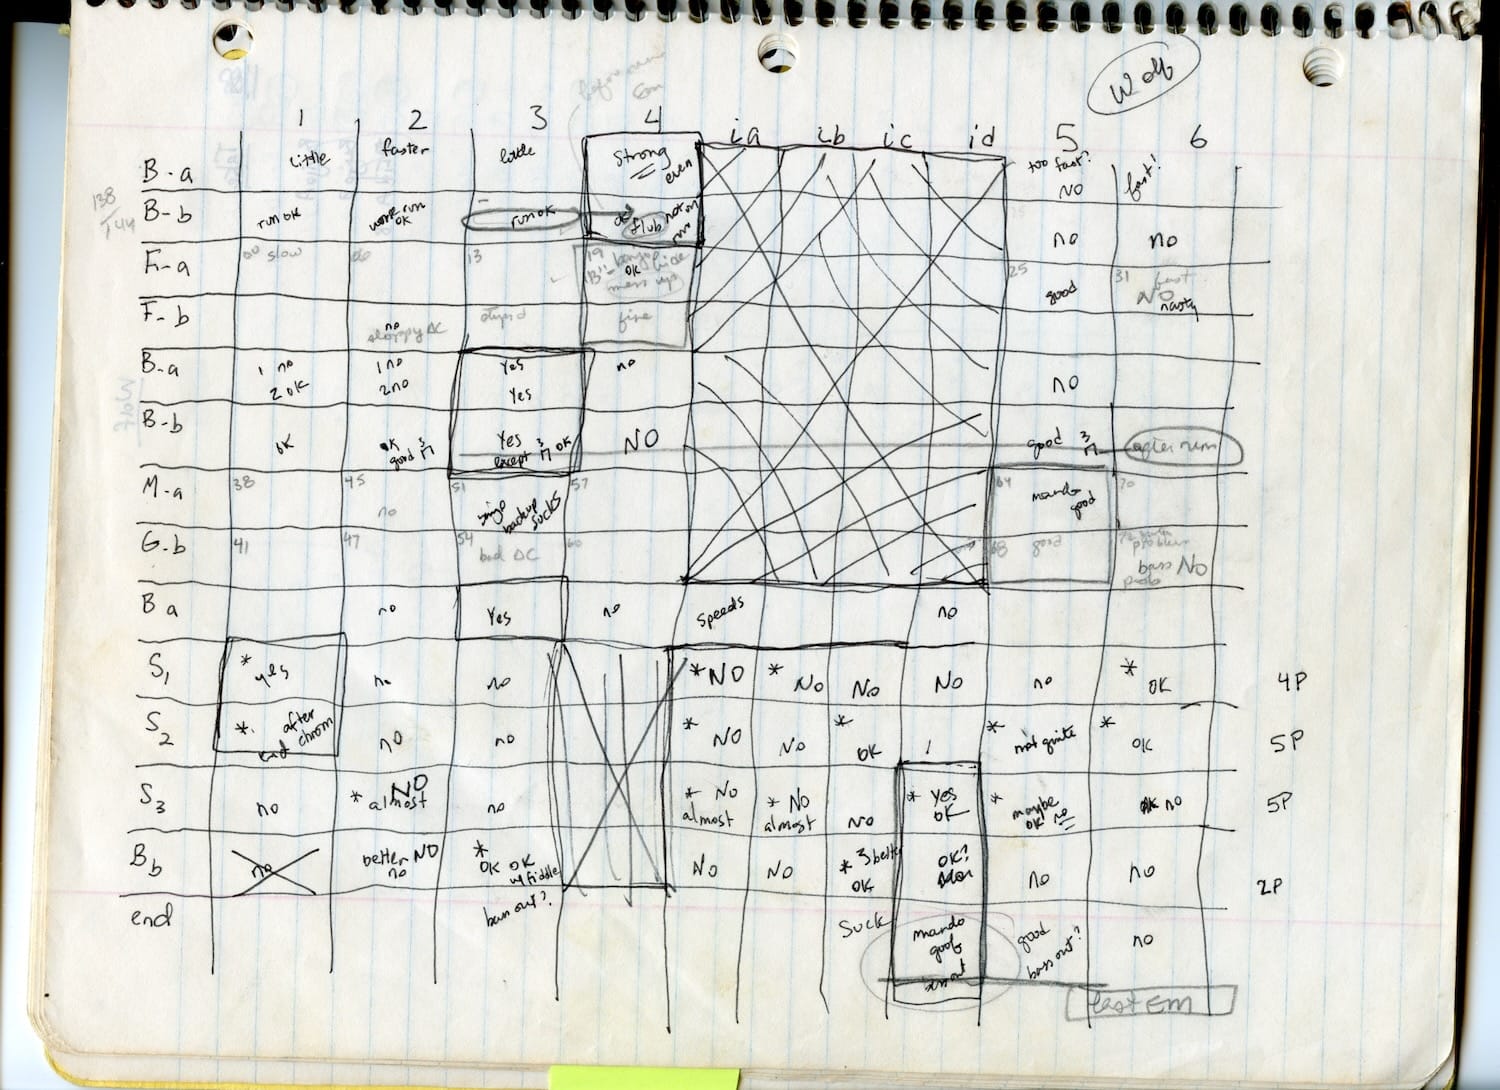 1 2 3 4 ia ib ic id 5 6
B-a little faster little Strong even too fast? NO fast!
138 / 144
B-b run OK run OK run OK OK flub not on run no no
F-a 00 slow 06 13 19 OK mess up 25 good 31 NO nasty
F-b no sloppy AC stupid fine
B-a 1 no 1 no Yes no no
2 OK 2 no Yes
B-b OK OK good 3 Yes except 3 OK NO good 3 after run
M-a 38 45 no 51 backup sucks 57 64 mando good 70
G-b 41 47 54 bad AC 60 68 good problem bass NO
B a no Yes no Speeds no
S1 * yes no no *NO * NO NO NO no * OK 4P
S2 * after chrom no no * NO NO * OK ! * not quite * OK 5P
S3 no * almost NO no * NO almost * NO almost NO * Yes OK * maybe OK! no OK no 5P
Bb no better NO no * OK OK w/ fiddle NO NO * 3 better OK OK? no no 2P
end bass out? suck mando good bass out good bass out? no
last Em